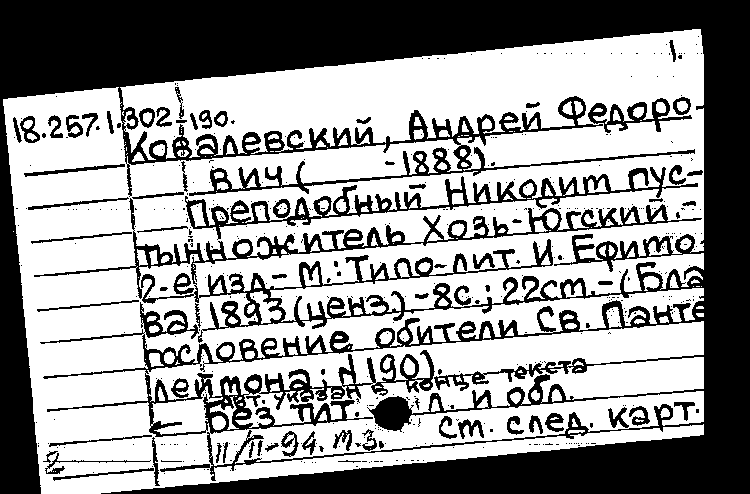 1.
18.257.1.302-190.
Ковалевский, Андрей Федоро-
вич ( -1888).
Преподобный Никодим пус-
тынножитель Хозь-Югский.-
2-е изд.- М.: Типо-лит. И. Ефимо-
ва, 1893 (ценз.) -8с.; 22см.-(Бла
гословение обители Св. Панте
леймона; N 190).
Авт. указан в конце текста
Без тит. л. и обл.
← См. след. карт.
2 II/II-94. т.з.